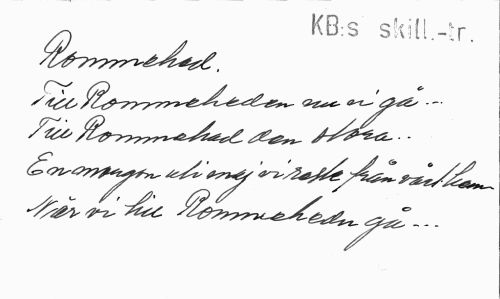 KB:s skill.-tr.
Rommehed.
Till Rommeheden nu vi gå...
Till Rommehed den stora..
En morgon uti maj vi reste från vårt hem
När vi till Rommeheden gå...